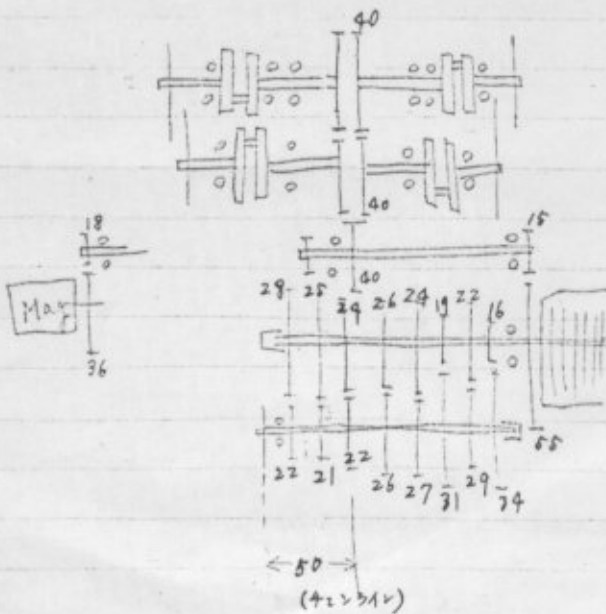 40
40
18
15
40
28 25 24 26 24 19 22 16
Mag
36
55
22 21 22 26 27 31 29 34
50
(チェンライン)